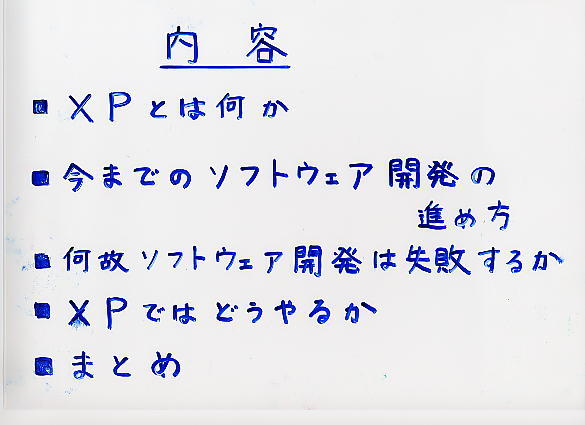 内 容
■ XPとは何か
■ 今までのソフトウェア開発の
進め方
■ 何故ソフトウェア開発は失敗するか
■ XPではどうやるか
■ まとめ